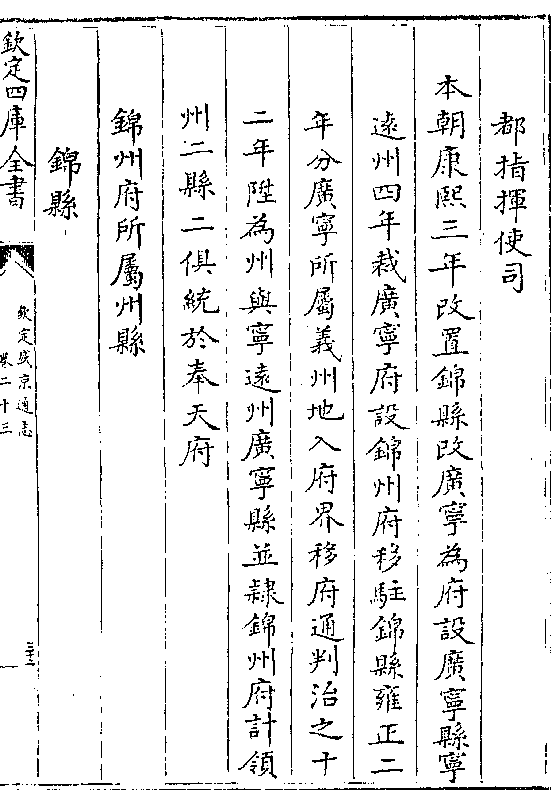 都指揮使司
本朝康熙三年改置錦縣改廣寧為府設廣寧縣寧
逺州四年裁廣寧府設錦州府移駐錦縣雍正二
年分廣寧所屬義州地入府界移府通判治之十
二年陞為州與寧逺州廣寧縣並隸錦州府計領
州二縣二俱統於奉天府
錦州府所屬州縣
錦縣
欽定四庫全書
欽定盛京通志
卷二十三